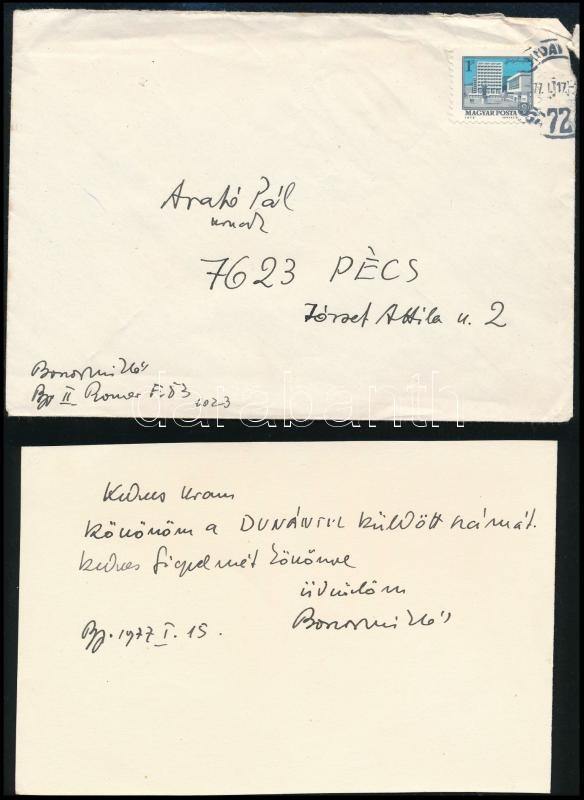 1Ft
MAGYAR POSTA
77. I. 17.
72
Arató Pál
urnak
7623 PÈCS
József Attila u. 2
Borsos Miklós
Bp II Romer F. 53
1023
darabanth
Kedves Uram
köszönöm a DUNÁNTUL küldött számát.
kedves figyelmét köszönve
üdvözlöm
Borsos Miklós
Bp. 1977 I. 15.